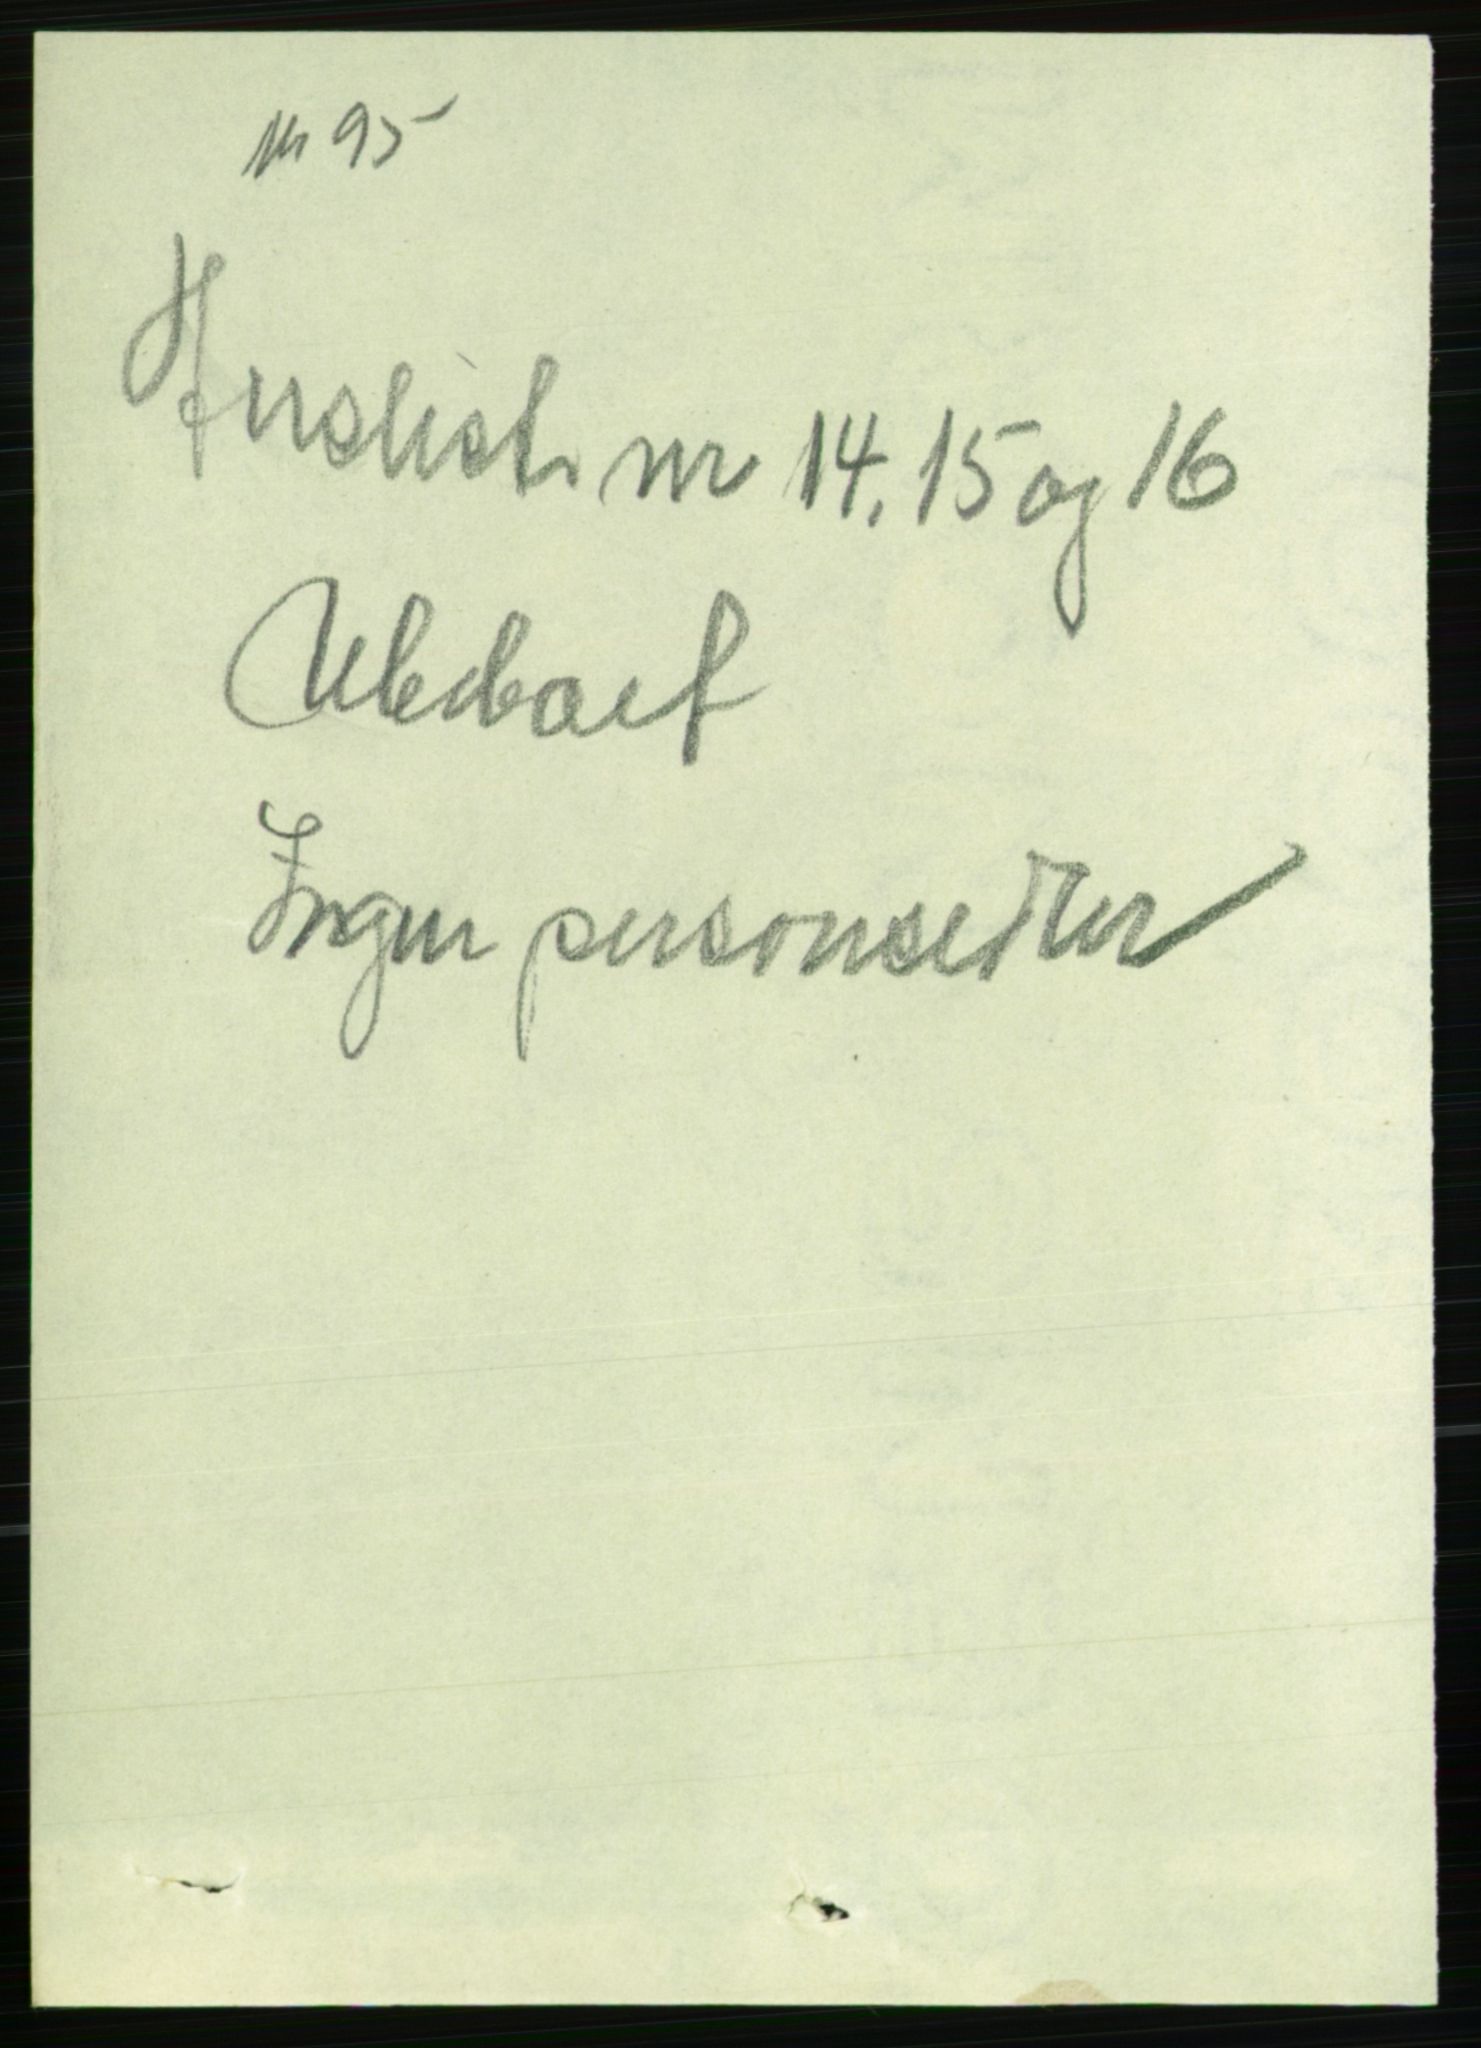 nr 95
Huslist nr 14, 15 og 16
Ubeboet
Ingen personsedler